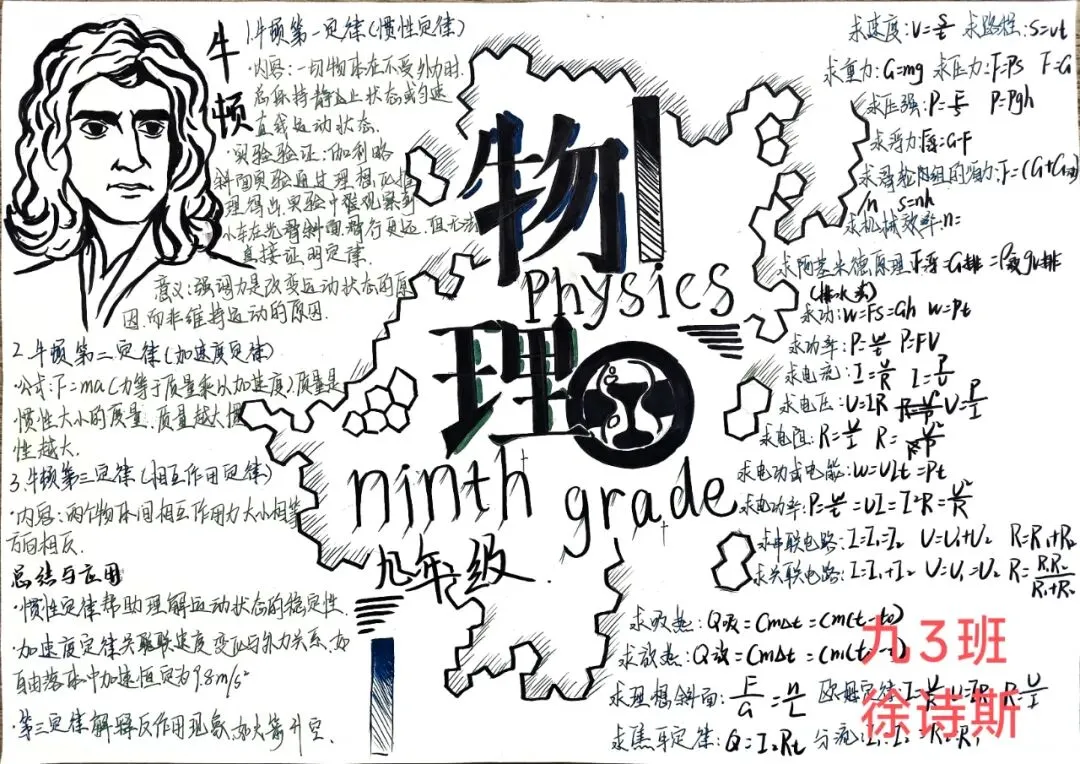 牛顿
1.牛顿第一定律(惯性定律)
·内容:一切物体在不受外力时,
总保持静止状态或匀速
直线运动状态.
·实验验证:伽利略
斜面实验通过理想化推
理得出,实验中虽观察到
小车在光滑斜面滑行更远,但无法
直接证明定律.
意义:强调力是改变运动状态的原
因.而非维持运动的原因.
2.牛顿第二定律(加速度定律)
·公式:F=ma(力等于质量乘以加速度)质量是
惯性大小的质量.质量越大惯
性越大.
3.牛顿第三定律(相互作用定律)
·内容:两个物体间相互作用力大小相等
方向相反.
总结与应用
·惯性定律帮助理解运动状态的稳定性.
·加速度定律关联速度变化与外力关系,如
自由落体中加速恒定为9.8m/s²
·第三定律解释反作用现象,如火箭升空.
物
physics
理
ninth grade
九年级
求速度:V=s/t 求路程:s=vt
求重力:G=mg 求压力:F=Ps F=G
求压强:P=F/s P=ρgh
求浮力F浮=G-F
求滑轮组的
F=(G+G动)
/n s=nh
求机械效率:η=
求阿基米德原理F浮=G排=ρ液gv排
(排水法)
求功:W=Fs=Gh W=Pt
求功率:P=W/t P=FV
求电流:I=U/R I=P/U
求电压:U=IR U=P/I
求电阻:R=U/I R=
求电功或电能:W=UIt=Pt
求电功率:P=W/t=UI=I²R=U²/R
求串联电路:I=I₁=I₂ U=U₁+U₂ R=R₁+R₂
求关联电路:I=I₁+I₂ U=U₁=U₂ R=R₁R₂/R₁+R₂
求吸热:Q吸=Cm△t=Cm(t-t0)
求放热:Q放=Cm△t=Cm(t
求理想斜面:F/G=h/L 欧姆定律:I=U/R U=IR R=U/I
求焦耳定律:Q=I²Rt 分流
九3班
徐诗斯